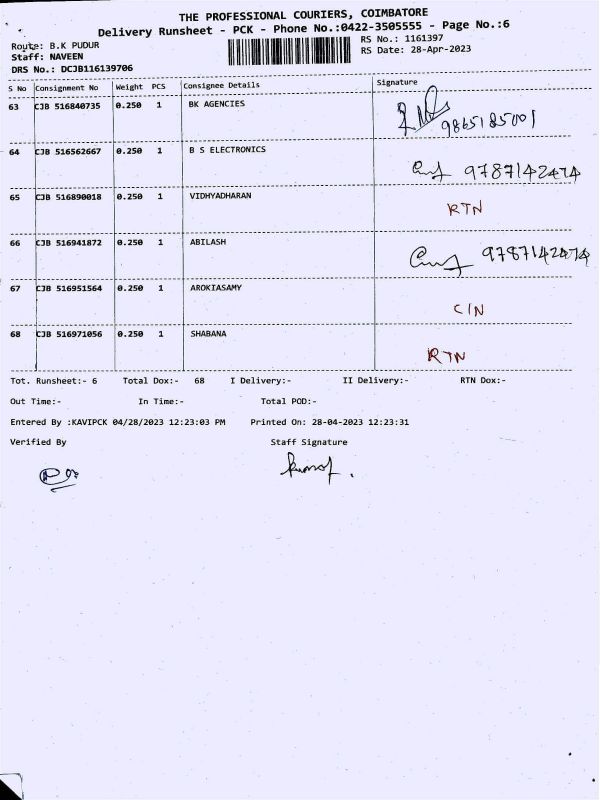 THE PROFESSIONAL COURIERS, COIMBATORE
Delivery Runsheet - PCK - Phone No.:0422-3505555 - Page No.:6
Route: B.K PUDUR
RS No.: 1161397
Staff: NAVEEN
RS Date: 28-Apr-2023
DRS No.: DCJB116139706
S No Consignment No Weight PCS Consignee Details Signature
63 CJB 516840735 0.250 1 BK AGENCIES
9865185001
64 CJB 516562667 0.250 1 B S ELECTRONICS
9787142474
65 CJB 516890018 0.250 1 VIDHYADHARAN
RTN
66 CJB 516941872 0.250 1 ABILASH
9787142474
67 CJB 516951564 0.250 1 AROKIASAMY
C/N
68 CJB 516971056 0.250 1 SHABANA
RTN
Tot. Runsheet:- 6 Total Dox:- 68 I Delivery:- II Delivery:- RTN Dox:-
Out Time:- In Time:- Total POD:-
Entered By :KAVIPCK 04/28/2023 12:23:03 PM Printed On: 28-04-2023 12:23:31
Verified By Staff Signature